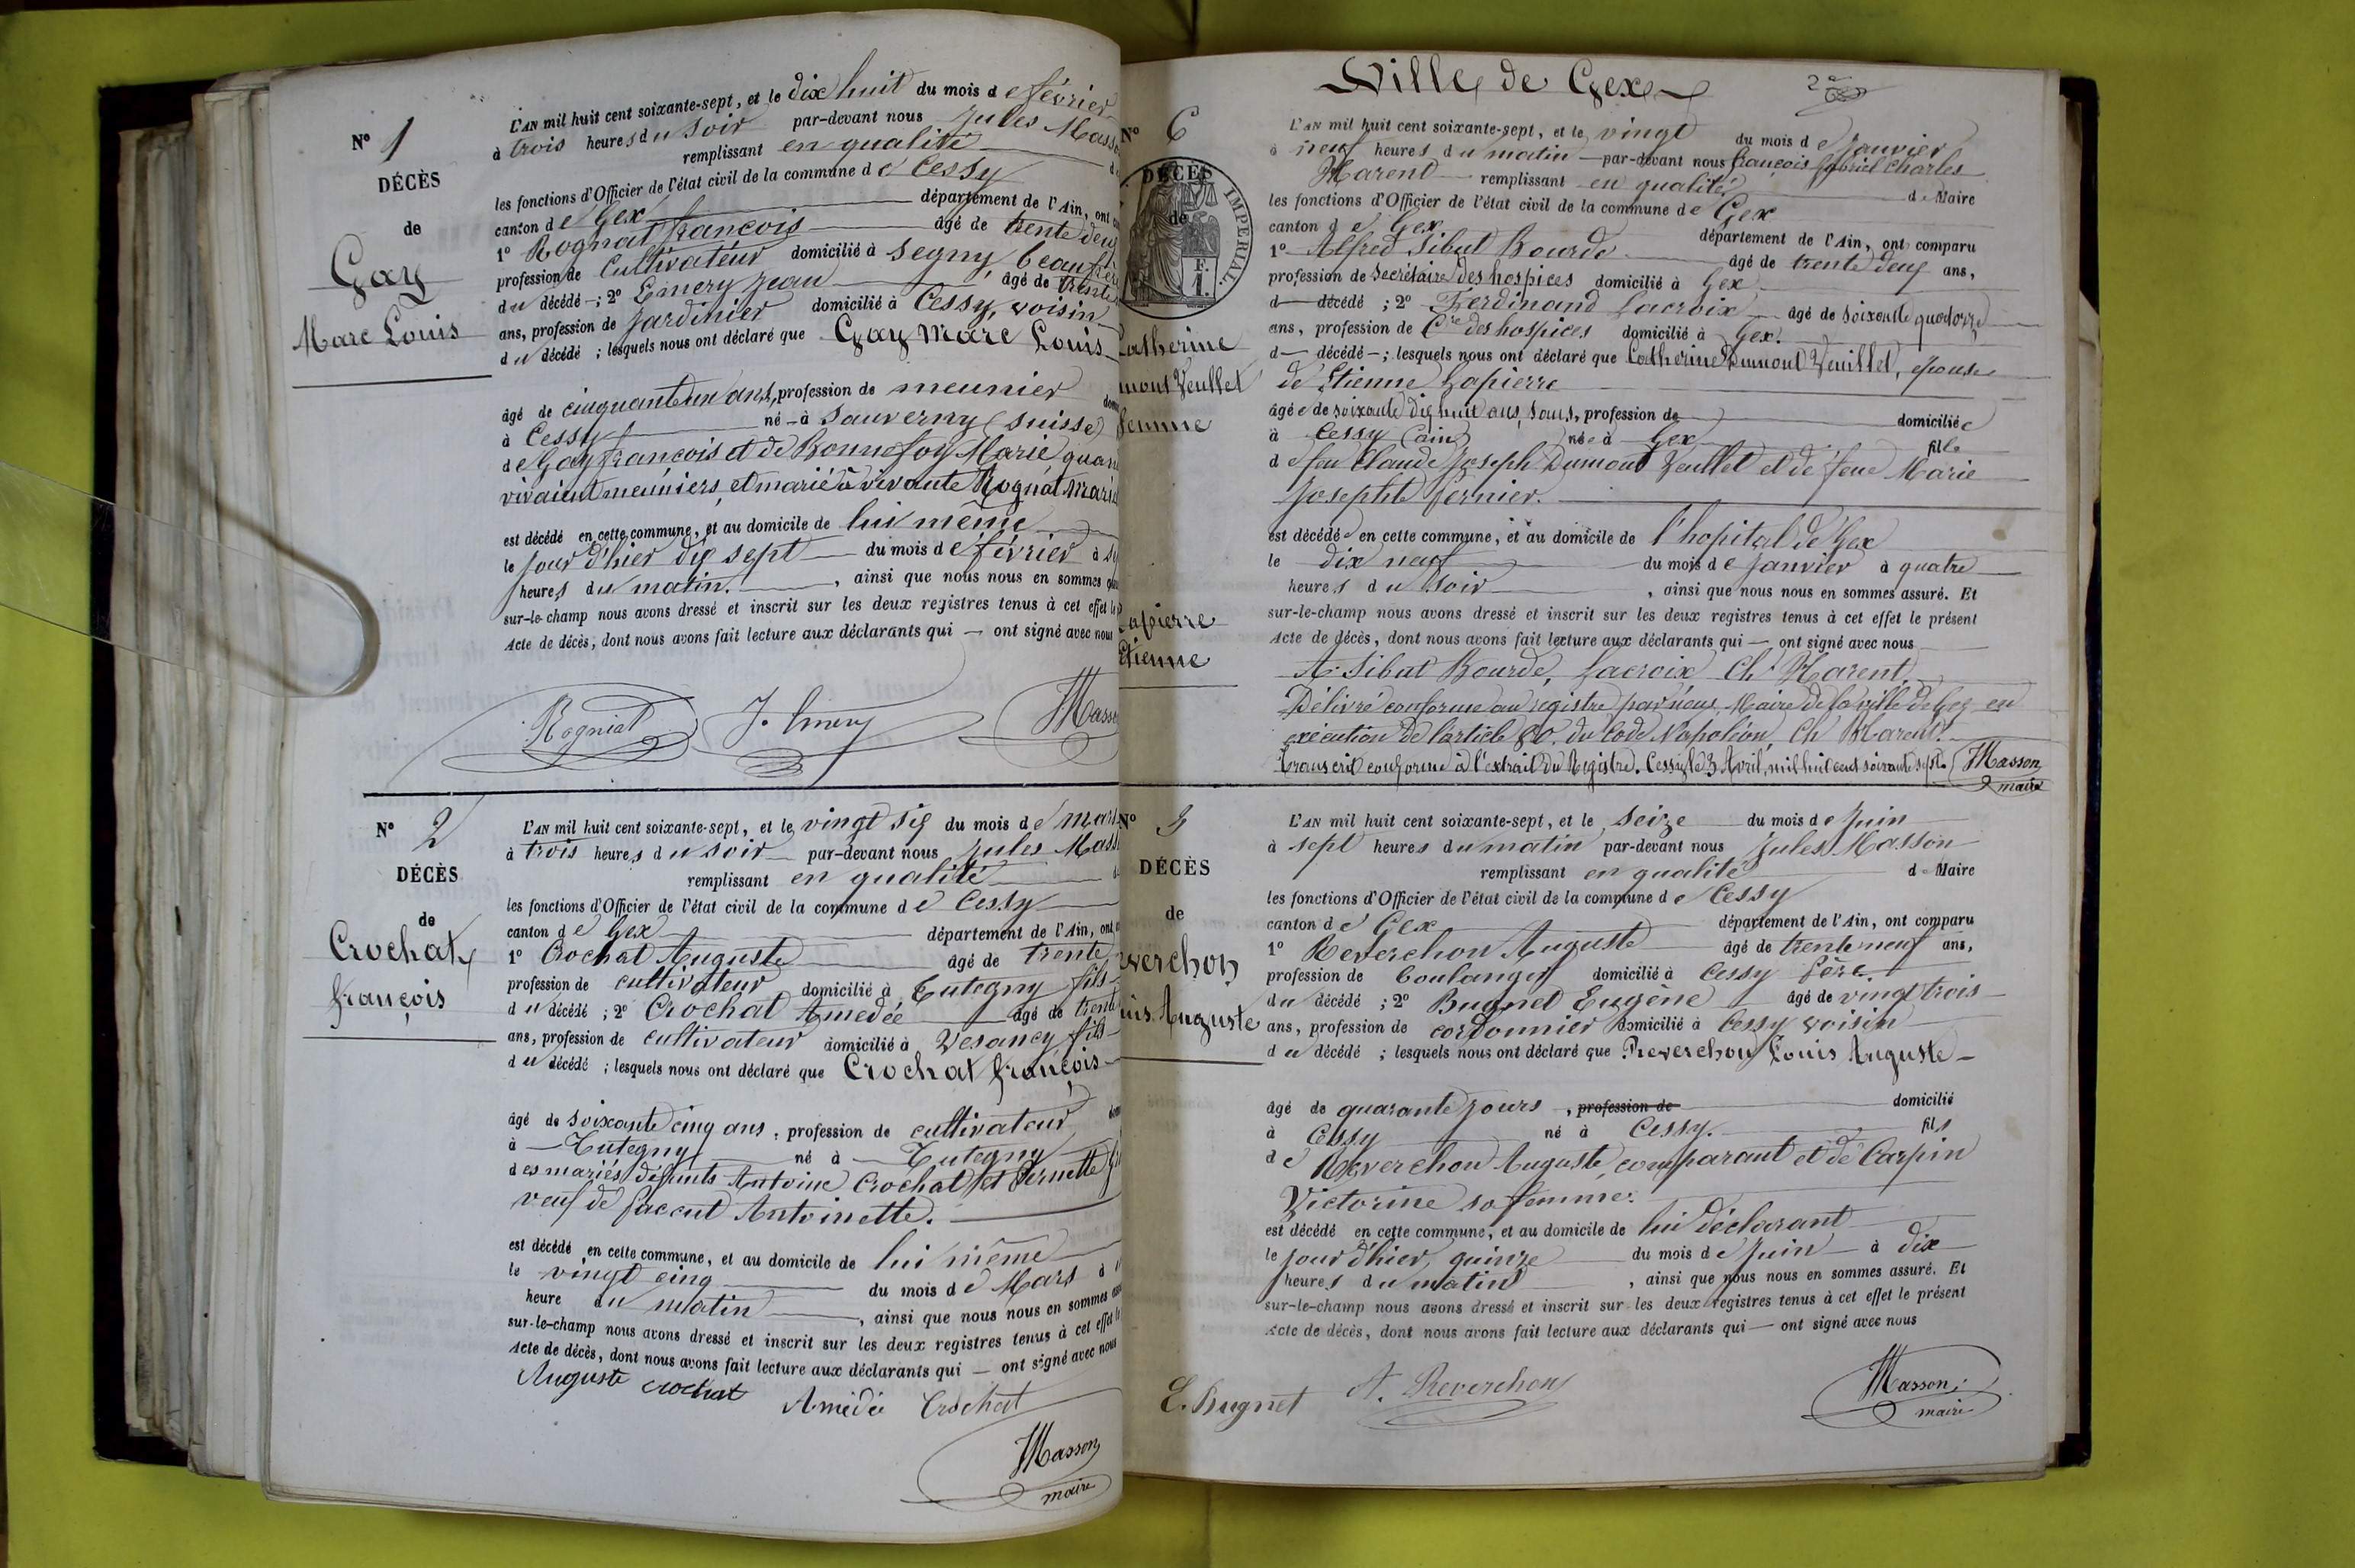 N° 1
DÉCÈS
de
Gay
Marc Louis
L'AN mil huit cent soixante-sept, et le dix huit du mois de février
à trois heures du soir par-devant nous Jules Mass
remplissant en qualité
les fonctions d'Officier de l'état civil de la commune de Cessy
canton de Gex département de l'Ain, ont
1° Rognat françois âgé de trente deux
profession de cultivateur domicilié à Segny, beau
du décédé ; 2° Emery Jean âgé de trente
ans, profession de Jardinier domicilié à Cessy, voisin
du décédé ; lesquels nous ont déclaré que Gay Marc Louis
âgé de cinquante un ans, profession de meunier
à Cessy né à Sauverny (Suisse)
de Gay françois et de Bonnefoy Marie quan
vivaient meuniers, et marié à vivante Rognat Marie
est décédé en cette commune, et au domicile de lui même
le jour d'hier dix sept du mois de février à
heures du matin, ainsi que nous nous en sommes
sur-le-champ nous avons dressé et inscrit sur les deux registres tenus à cet effet le
Acte de décès, dont nous avons fait lecture aux déclarants qui — ont signé avec nous
Rogniat J. Emery Masso
N° 2
DÉCÈS
de
Crochat
françois
L'AN mil huit cent soixante-sept, et le vingt six du mois de Mars
à trois heures du soir par-devant nous Jules Mass
remplissant en qualité
les fonctions d'Officier de l'état civil de la commune de Cessy
canton de Gex département de l'Ain, ont
1° Crochat Auguste âgé de trente
profession de cultivateur domicilié à Tutegny fils
du décédé ; 2° Crochat Amedée âgé de trente
ans, profession de cultivateur domicilié à Vesancy fils
du décédé ; lesquels nous ont déclaré que Crochat françois
âgé de soixante cinq ans, profession de cultivateur
à Tutegny né à Tutegny
des mariés défunts Antoine Crochat et Pernette
veuf de Antoinette.
est décédé en cette commune, et au domicile de lui même
le vingt cinq du mois de Mars à
heure du matin, ainsi que nous nous en sommes
sur-le-champ nous avons dressé et inscrit sur les deux registres tenus à cet effet le
Acte de décès, dont nous avons fait lecture aux déclarants qui — ont signé avec nous
Auguste crochat Amédée Crochat
Masson
maire
Ville de Gex
N° 6
DÉCÈS
de
IMPERIAL.
Catherine
mont Veuillet
femme
Lapierre
Etienne
L'AN mil huit cent soixante-sept, et le vingt du mois de Janvier
à neuf heures du matin par-devant nous françois Gabriel Charles
Harent remplissant en qualité de Maire
les fonctions d'Officier de l'état civil de la commune de Gex
canton de Gex département de l'Ain, ont comparu
1° Alfred Sibut Bourde âgé de trente deux ans,
profession de secrétaire des hospices domicilié à Gex
d décédé ; 2° Ferdinand Lacroix âgé de soixante quatorze
ans, profession de Cre des hospices domicilié à Gex.
d décédé ; lesquels nous ont déclaré que Catherine Dumont Veuillet, épouse
de Etienne Lapierre
âgée de soixante dix huit ans, sans, profession de domiciliée
à Cessy (ain) née à Gex fille
de feu Claude Joseph Dumont Veuillet et de feue Marie
Josephte fernier.
est décédée en cette commune, et au domicile de l'hopital de Gex
le dix neuf du mois de Janvier à quatre
heures du soir, ainsi que nous nous en sommes assuré. Et
sur-le-champ nous avons dressé et inscrit sur les deux registres tenus à cet effet le présent
Acte de décès, dont nous avons fait lecture aux déclarants qui — ont signé avec nous
A. Sibut Bourde, Lacroix Ch. Harent.
Délivré conforme au registre par nous, Maire de la ville de Gex en
exécution de l'article 80. du Code Napoléon, Ch Harent.
Transcrit conforme à l'extrait du Registre. Cessy le 3 Avril, mil huit cent soixante sept. Masson
maire
N° 3
DÉCÈS
de
verchon
uis Auguste
L'AN mil huit cent soixante-sept, et le seize du mois de Juin
à sept heures du matin par-devant nous Jules Masson
remplissant en qualité de Maire
les fonctions d'Officier de l'état civil de la commune de Cessy
canton de Gex département de l'Ain, ont comparu
1° Reverchon Auguste âgé de trente neuf ans,
profession de boulanger domicilié à Cessy père
du décédé ; 2° Bugnet Eugène âgé de vingt trois
ans, profession de cordonnier domicilié à Cessy voisin
du décédé ; lesquels nous ont déclaré que Reverchon Louis Auguste
âgé de quarante jours, profession de domicilié
à Cessy né à Cessy. fils
de Reverchon Auguste, comparant et de Carpin
Victorine sa femme.
est décédé en cette commune, et au domicile de lui déclarant
le jour d'hier, quinze du mois de Juin à dix
heures du matin, ainsi que nous nous en sommes assuré. Et
sur-le-champ nous avons dressé et inscrit sur les deux registres tenus à cet effet le présent
Acte de décès, dont nous avons fait lecture aux déclarants qui — ont signé avec nous
E. Bugnet A. Reverchon Masson
maire